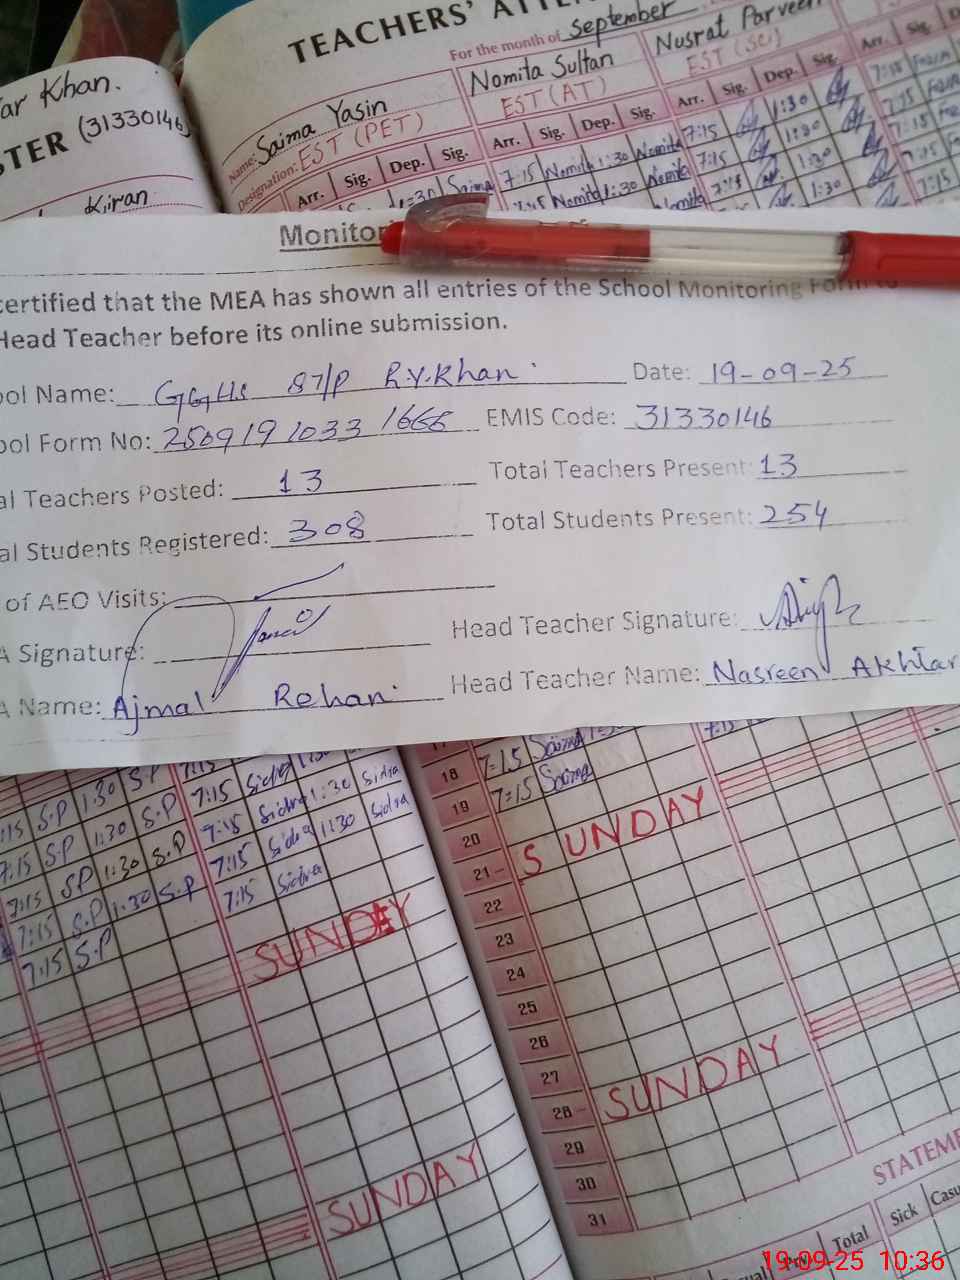 TEACHERS' ATTE
For the month of September
ar Khan.
STER (31330146)
Kiran
Name: Saima Yasin
Designation: EST (PET)
Nomita Sultan
EST (AT)
Nusrat Parveen
EST (SC)
Arr. Sig. Dep. Sig. Arr. Sig. Dep. Sig. Arr. Sig. Dep. Sig. Arr. Sig.
1:30 Saima 7:15 Nomita 1:30 Nomita 7:15 1:30 7:15
7:15 Nomita 1:30 Nomita 7:15 1:30 7:15
Nomita 7:15 1:30 7:15
1:30 7:15
Monitor
certified that the MEA has shown all entries of the School Monitoring Form to
Head Teacher before its online submission.
ool Name: GGHS 87/P R.Y.Khan. Date: 19-09-25
ool Form No: 2509191033 1666 EMIS Code: 31330146
al Teachers Posted: 13 Total Teachers Present: 13
al Students Registered: 308 Total Students Present: 254
of AEO Visits:
A Signature: Head Teacher Signature:
A Name: Ajmal Rehan. Head Teacher Name: Nasreen Akhtar
:15 S.P 1:30 S.P 7:15
7:15 S.P 1:30 S.P 7:15 Sidra 1:30
7:15 S.P 1:30 S.P 7:15 Sidra 1:30 Sidra
7:15 S.P 1:30 S.P 7:15 Sidra 1:30 Sidra
7:15 S.P 7:15 Sidra
SUNDAY
SUNDAY
17 7:15
18 7:15 Saima
19 7:15 Saima
20
21 SUNDAY
22
23
24
25
26
27
28 SUNDAY
29
30
31
STATEME
Total Sick Casu
19-09-25 10:36